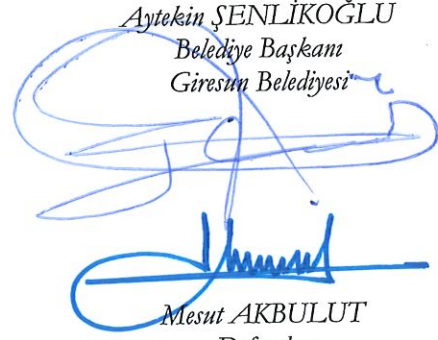 Aytekin ŞENLİKOĞLU
Belediye Başkanı
Giresun Belediyesi
Mesut AKBULUT